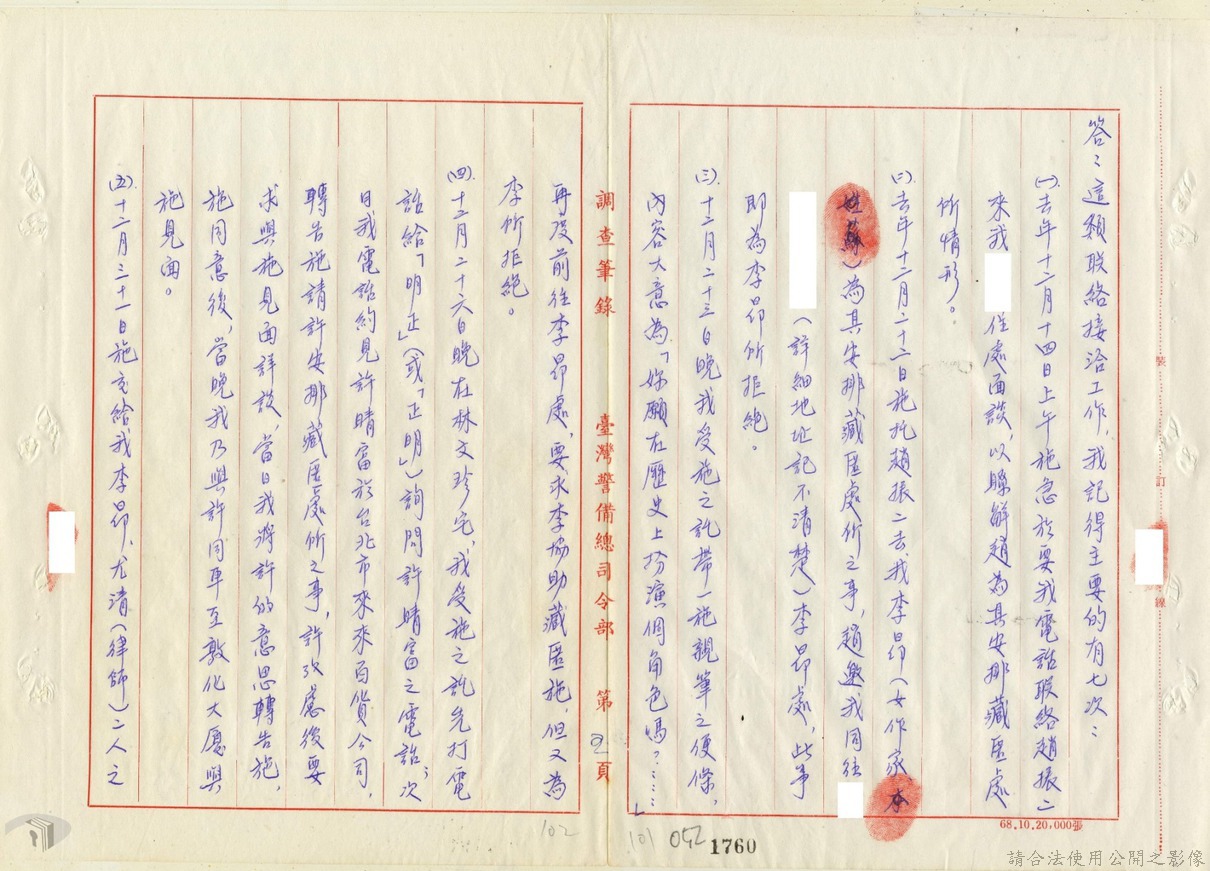 答：這類聯絡接洽工作，我記得主要的有七次：
㈠去年十二月十四日上午施急於要我電話聯絡趙振二
來我　住處面談，以瞭解趙為其安排藏匿處
所情形。
㈡去年十二月二十二日施托趙振二去找李昂（女作家本
姓）為其安排藏匿處所之事，趙邀我同往
（詳細地址記不清楚）李昂處，此事
即為李昂所拒絕。
㈢十二月二十三日晚我受施之託帶一施親筆之便條，
內容大意為「妳願在歷史上扮演個角色嗎？……」
再度前往李昂處，要求李協助藏匿施，但又為
李所拒絕。
㈣十二月二十六日晚在林文珍宅，我受施之託先打電
話給「明正」（或「正明」）詢問許晴富之電話；次
日我電話約見許晴富於台北市來來百貨公司，
轉告施請許安排藏匿處所之事，許考慮後要
求與施見面詳談，當日我將許的意思轉告施，
施同意後，當晚我乃與許同車至敦化大廈與
施見面。
㈤十二月三十一日施交給我李昂、尤清（律師）二人之
調查筆錄　臺灣警備總司令部　第2頁
裝訂線
68.10.20,000張
102
101
052
1760
請合法使用公開之影像